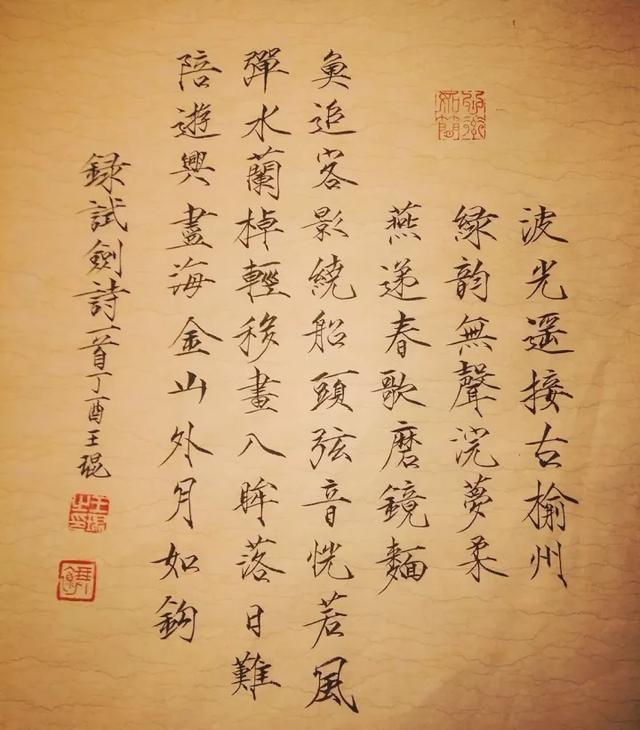 波光遥接古榆州
緑韵無聲浣夢柔
燕递春歌磨鏡麵
魚追客影繞船頭弦音恍若風
彈水蘭棹輕移畫入眸落日難
陪遊興盡海金山外月如鈎
録試劍詩一首丁酉王琨